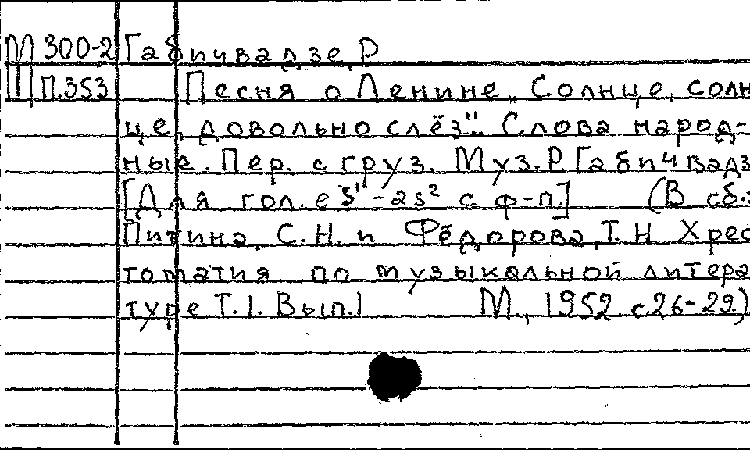 М 300-2 Габичвадзе, Р
П.353 Песня о Ленине „Солнце, солн
це, довольно слёз". Слова народ-
ные. Пер. с груз. Муз. Р Габичвадз
[Для гол. es¹-as² с ф-п.] (В сб.:
Питина, С.Н. и Фёдорова, Т.Н Хрес
томатия по музыкальной литера
туре Т.1. Вып.1 М., 1952 с.26-29.)